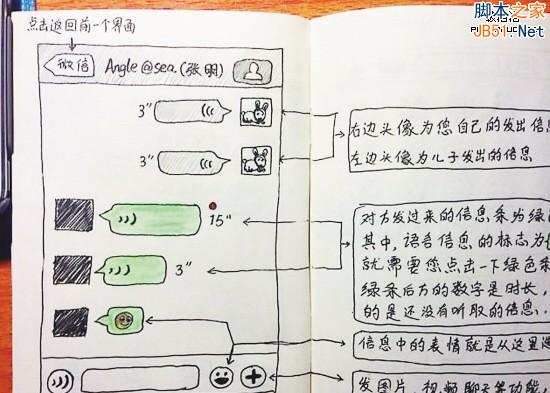 点击返回前一个界面
脚本之家
JB51.Net
微信 Angle@sea.(张明)
3"
3"
15"
3"
右边头像为您自己的发出信息
左边头像为儿子发出的信息
对方发过来的信息条为绿
其中,语音信息的标志为
就需要您点击一下绿色条
绿条后方的数字是时长,
的是还没有听取的信息.
信息中的表情就是从这里
发图片、视频聊天等功能,